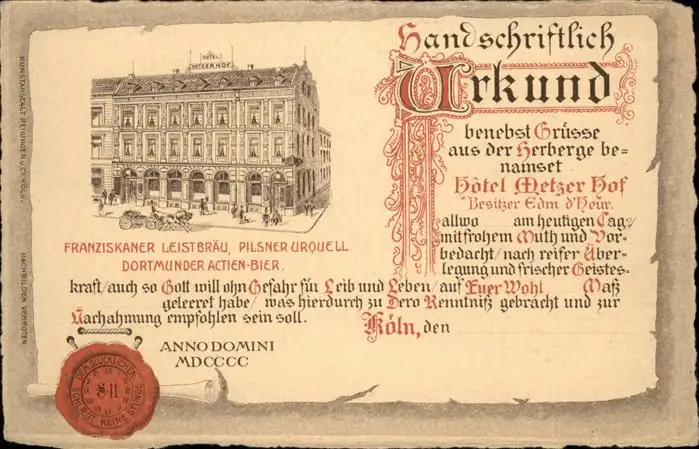 Handschriftlich
Urkund
benebst Grüsse
aus der Herberge be-
namset
Hôtel Metzer Hof
Besitzer Edm d'heur.
allwo am heutigen Tag
mit frohem Muth und Vor-
bedacht/ nach reifer Über-
legung und frischer Geistes-
kraft/ auch so Gott will ohn Gefahr für Leib und Leben/ auf Euer Wohl Maß
geleeret habe/ was hierdurch zu Dero Kenntniß gebracht und zur
Nachahmung empfohlen sein soll.
Köln, den
HOTEL
METZERHOF
FRANZISKANER LEISTBRÄU, PILSNER URQUELL
DORTMUNDER ACTIEN-BIER.
ANNO DOMINI
MDCCCC
DEM GLÜCKLICHEN
SCHLÆGT KEINE STUNDE
KUNSTANSTALT REISINGER & CY KÖLN.
NACHBILDEN VERBOTEN